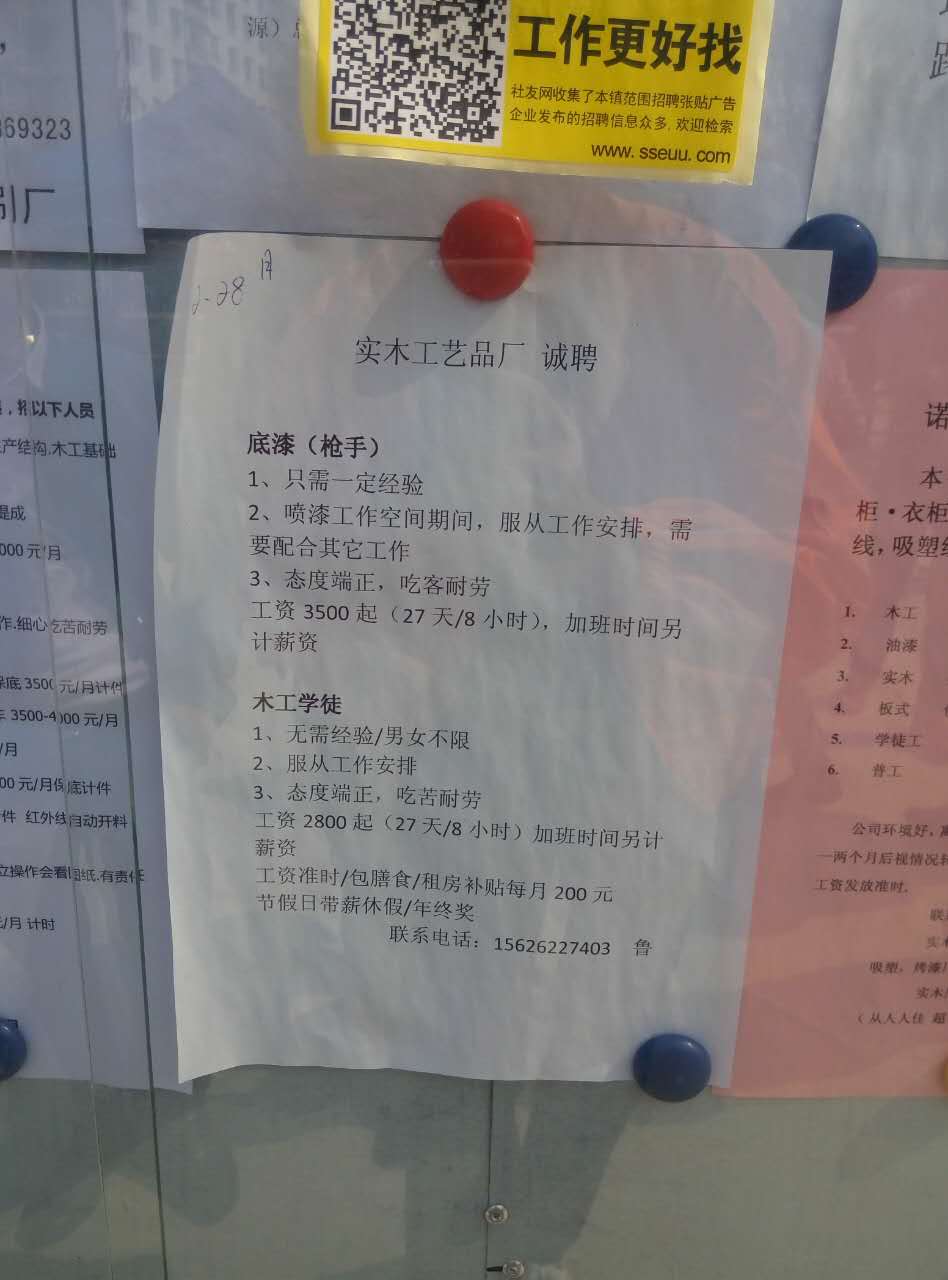 源）
工作更好找
社友网收集了本镇范围招聘张贴广告
企业发布的招聘信息众多,欢迎检索
www.sseuu.com
369323
厂
2-28
实木工艺品厂 诚聘
底漆（枪手）
1、只需一定经验
2、喷漆工作空间期间，服从工作安排，需
要配合其它工作
3、态度端正，吃客耐劳
工资 3500 起（27 天/8 小时），加班时间另
计薪资
木工学徒
1、无需经验/男女不限
2、服从工作安排
3、态度端正，吃苦耐劳
工资 2800 起（27 天/8 小时）加班时间另计
薪资
工资准时/包膳食/租房补贴每月 200 元
节假日带薪休假/年终奖
联系电话：15626227403 鲁
，招以下人员
产结构.木工基础
提成
000 元/月
作.细心吃苦耐劳
保底 3500 元/月计件
3500-4000 元/月
/月
00 元/月保底计件
件 红外线自动开料
立操作会看图纸.有责任
元/月 计时
诺
本
柜·衣柜
线，吸塑
1. 木工
2. 油漆
3. 实木
4. 板式
5. 学徒工
6. 普工
公司环境好，
一两个月后视情况转
工资发放准时.
联
实木
吸塑，烤漆
实木
（从人人佳 超